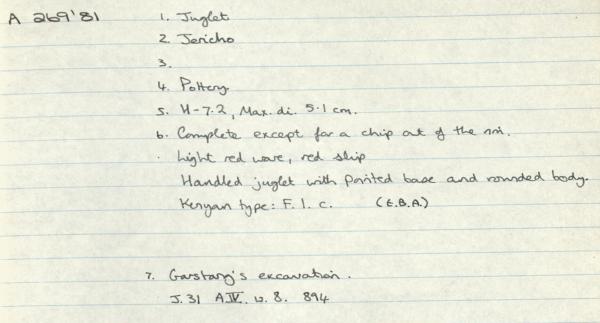 A 269'81
1. Juglet
2. Jericho
3.
4. Pottery
5. H-7.2, Max. di. 5.1 cm.
6. Complete except for a chip out of the rim.
. Light red ware, red slip
Handled juglet with pointed base and rounded body.
Kenyon type: F. 1. c. (E.B.A.)
7. Garstang's excavation.
J. 31 A IV. w. 8. 894